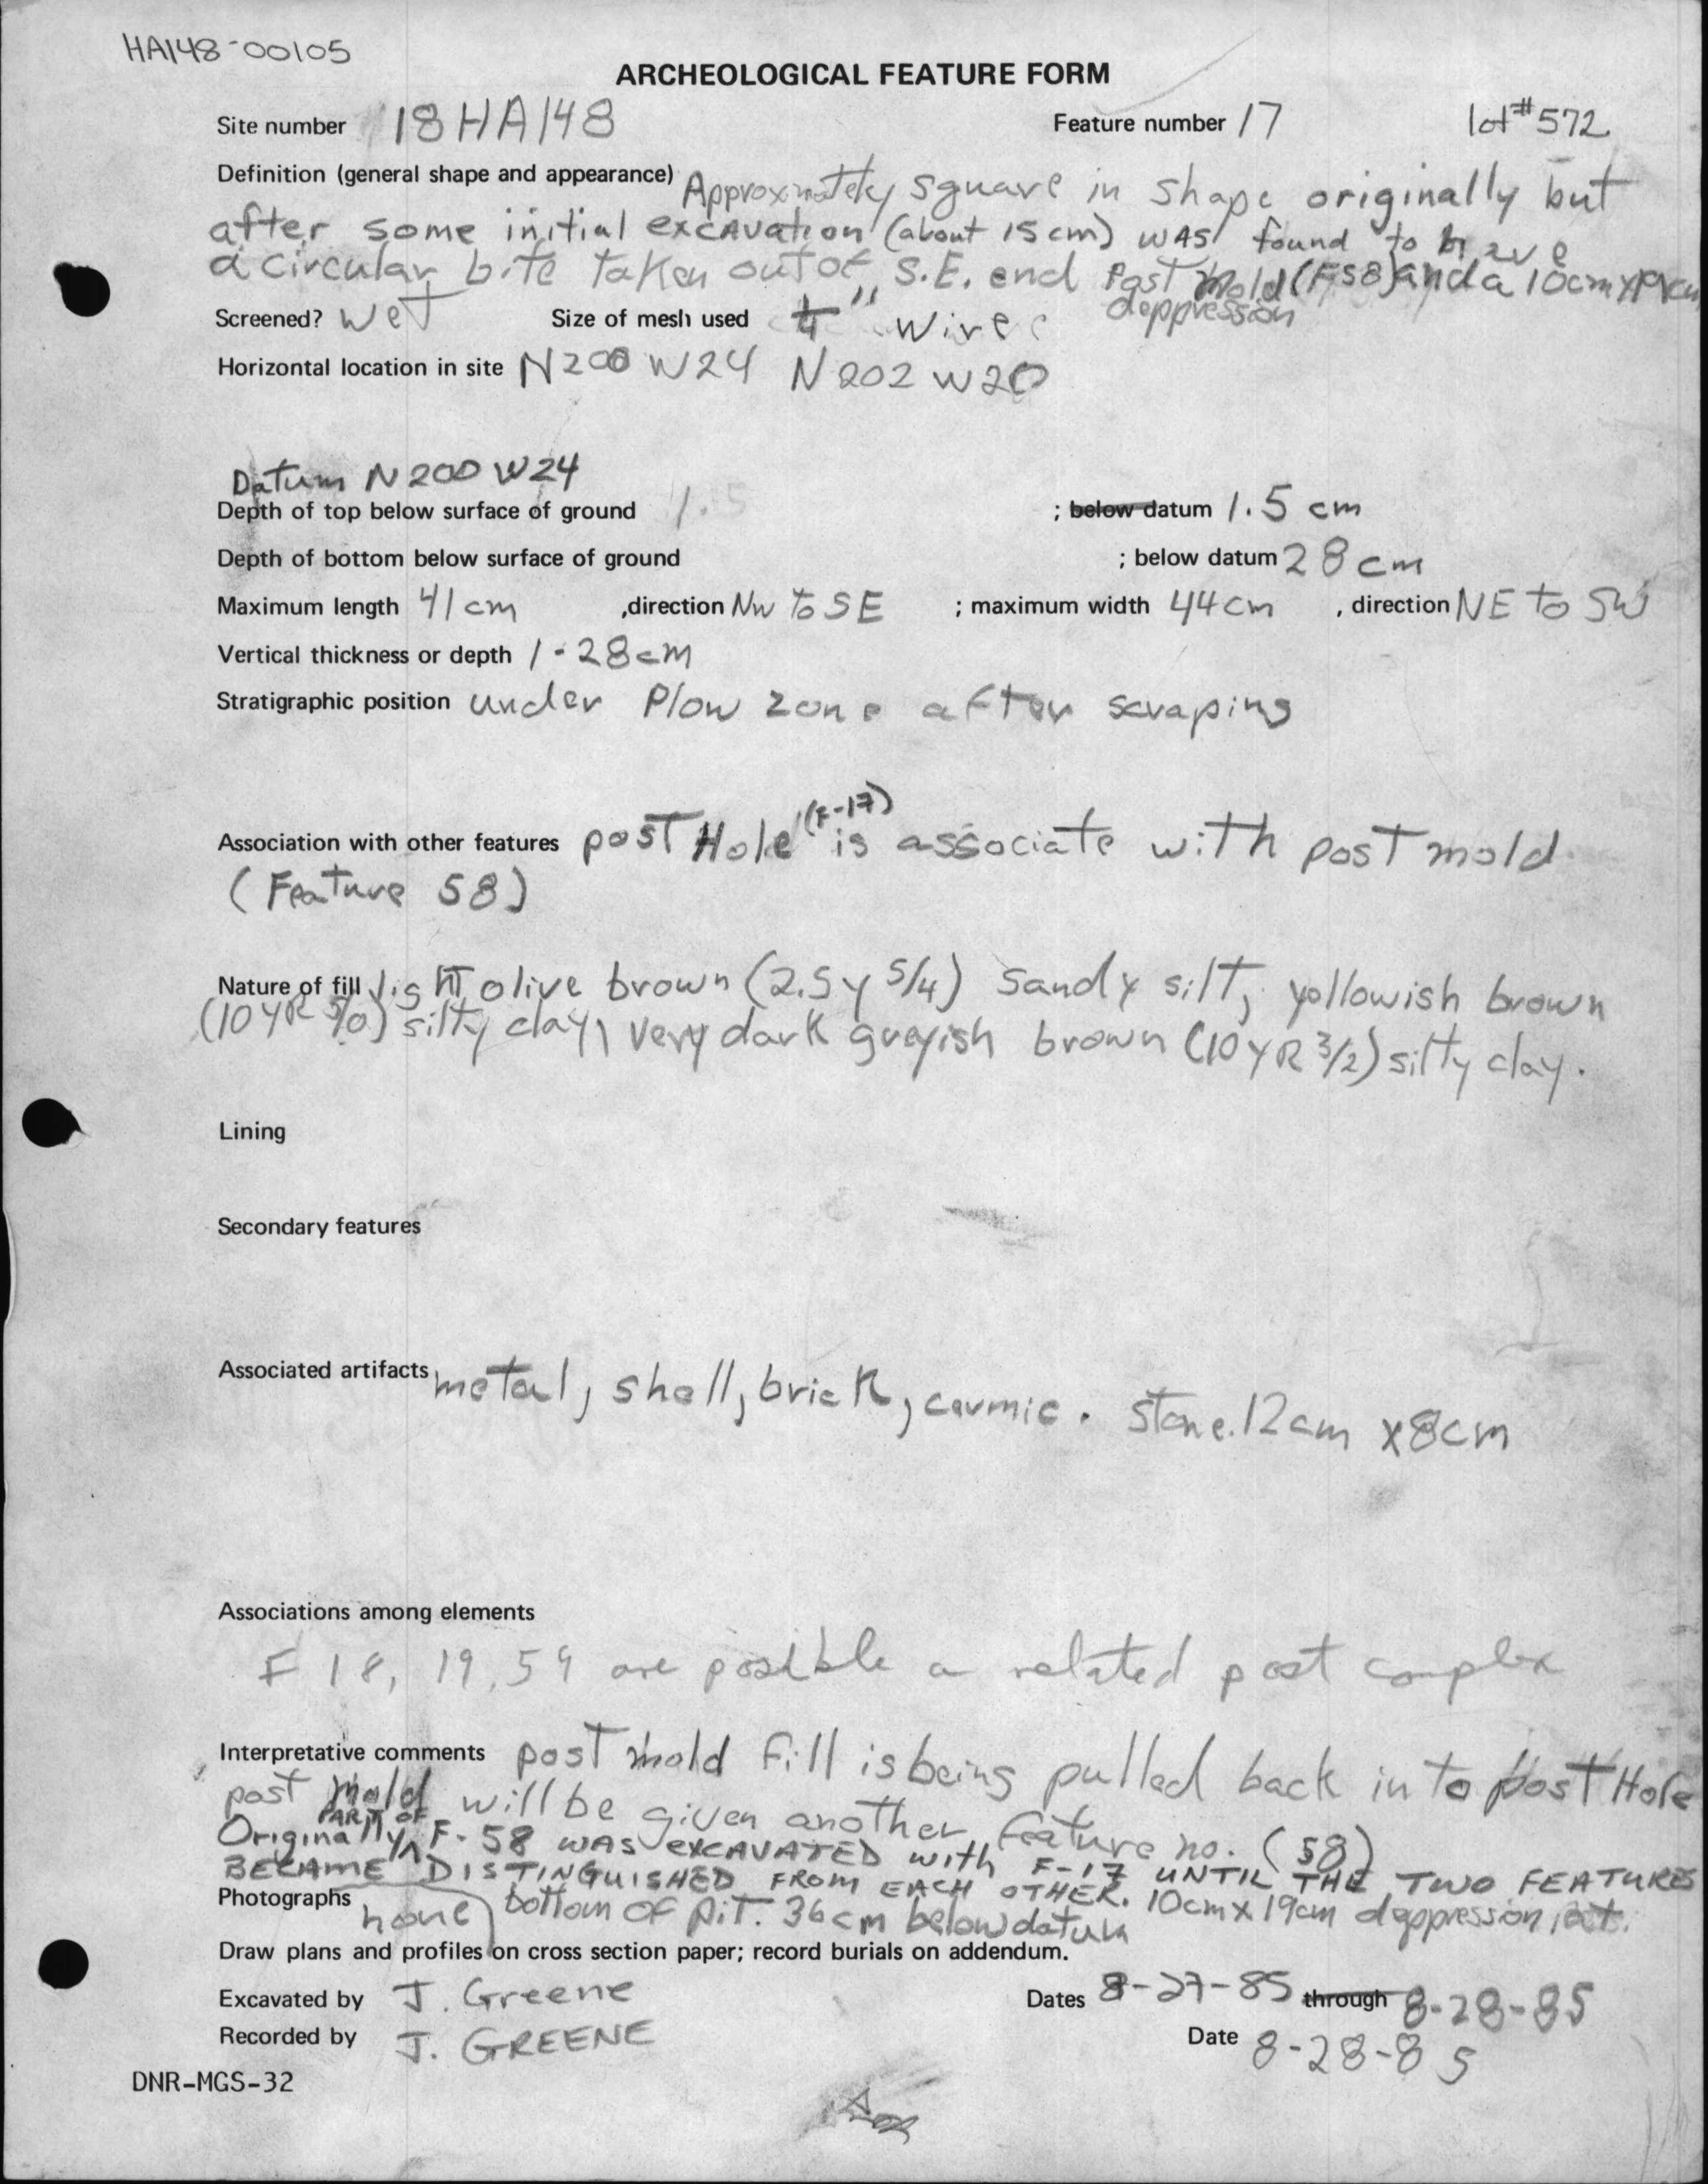 HA148-00105
ARCHEOLOGICAL FEATURE FORM
Site number 18HA148 Feature number 17 lot #572
Definition (general shape and appearance) Approximately square in shape originally but
after some initial excavation (about 15cm) was found to have
a circular bite taken out of S.E. end Post Mold (F58) and a 10cm x 19cm
deppression
Screened? Wet Size of mesh used 1/4" wire
Horizontal location in site N200 W24 N202 W20
Datum N200 W24
Depth of top below surface of ground 1.5 ; below datum 1.5 cm
Depth of bottom below surface of ground ; below datum 28 cm
Maximum length 41 cm ,direction NW to SE ; maximum width 44 cm , direction NE to SW
Vertical thickness or depth 1-28cm
Stratigraphic position under Plow zone after scraping
Association with other features post Hole (F-17) is associate with post mold
(Feature 58)
Nature of fill light olive brown (2.5y 5/4) sandy silt, yollowish brown
(10YR silty clay, very dark greyish brown (10YR 3/2) silty clay.
Lining
Secondary features
Associated artifacts metal, shell, brick, cermic. stone. 12cm x8cm
Associations among elements
F 18, 19, 59 are possible a related post complex
Interpretative comments post mold fill is being pulled back in to post Hole
post mold will be given another feature no. (58)
Originally PART OF F-58 WAS EXCAVATED with F-17 UNTIL THE TWO FEATURES
BECAME DISTINGUISHED FROM EACH OTHER. 10cm x 19cm deppression at
Photographs none bottom of pit. 36cm below datum
Draw plans and profiles on cross section paper; record burials on addendum.
Excavated by J. Greene Dates 8-27-85 through 8-28-85
Recorded by J. GREENE Date 8-28-85
DNR-MGS-32